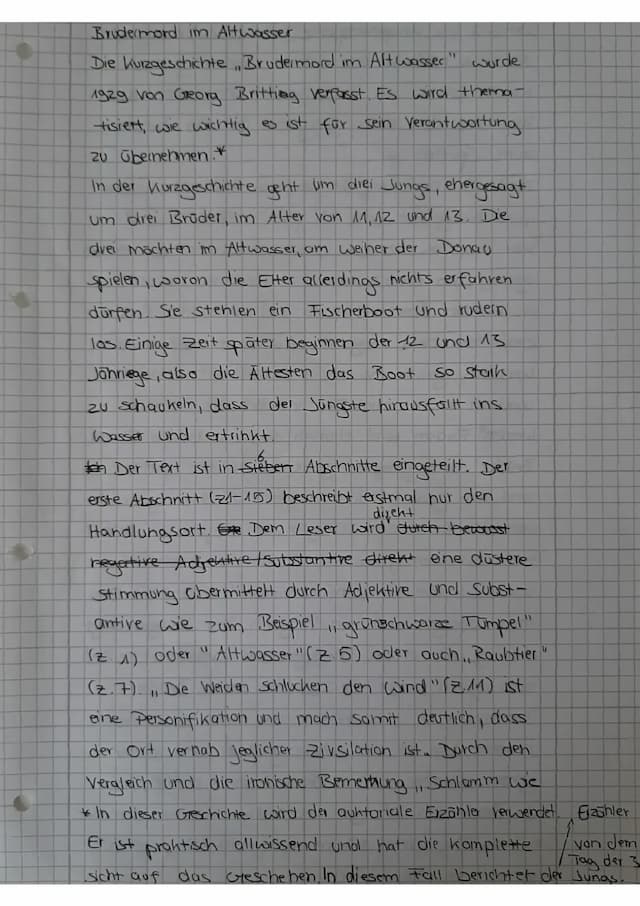 Brudermord im Altwasser
Die Kurzgeschichte „Brudermord im Altwasser" wurde
1929 von Georg Britting verfasst. Es wird thema-
tisiert, wie wichtig es ist für sein Verantwortung
zu übernehmen.*
In der Kurzgeschichte geht um drei Jungs, ehergesagt
um drei Brüder, im Alter von 11, 12 und 13. Die
drei möchten im Altwasser, am weiher der Donau
spielen, wovon die Elter allerdings nichts erfahren
dürfen. Sie stehlen ein Fischerboot und rudern
los. Einige Zeit später beginnen der 12 und 13
Jähriege, also die Ältesten das Boot so stark
zu schaukeln, dass der Jüngste hirausfällt ins
Wasser und ertrinkt.
Der Text ist in sieben 6 Abschnitte eingeteilt. Der
erste Abschnitt (z1-15) beschreibt erstmal nur den
Handlungsort. Dem Leser wird direkt durch bewusst
negative Adjektive/Substantive direkt eine düstere
Stimmung übermittelt durch Adjektive und Subst-
antive wie zum Beispiel „grünschwarze Tümpel"
(z 1) oder "Altwasser" (z 5) oder auch „Raubtier"
(z.7). „Die Weiden schlucken den Wind" (z.11) ist
eine Personifikation und mach somit deutlich, dass
der Ort vernab jeglicher Zivsilation ist. Durch den
Vergleich und die ironische Bemerkung „Schlamm wie
* In dieser Geschichte wird der auktoriale Erzähle verwendet.
Er ist praktisch allwissend und hat die komplette
sicht auf das Geschehen. In diesem Fall berichtet der
Erzähler
von dem
Tag der 3
Jungs.